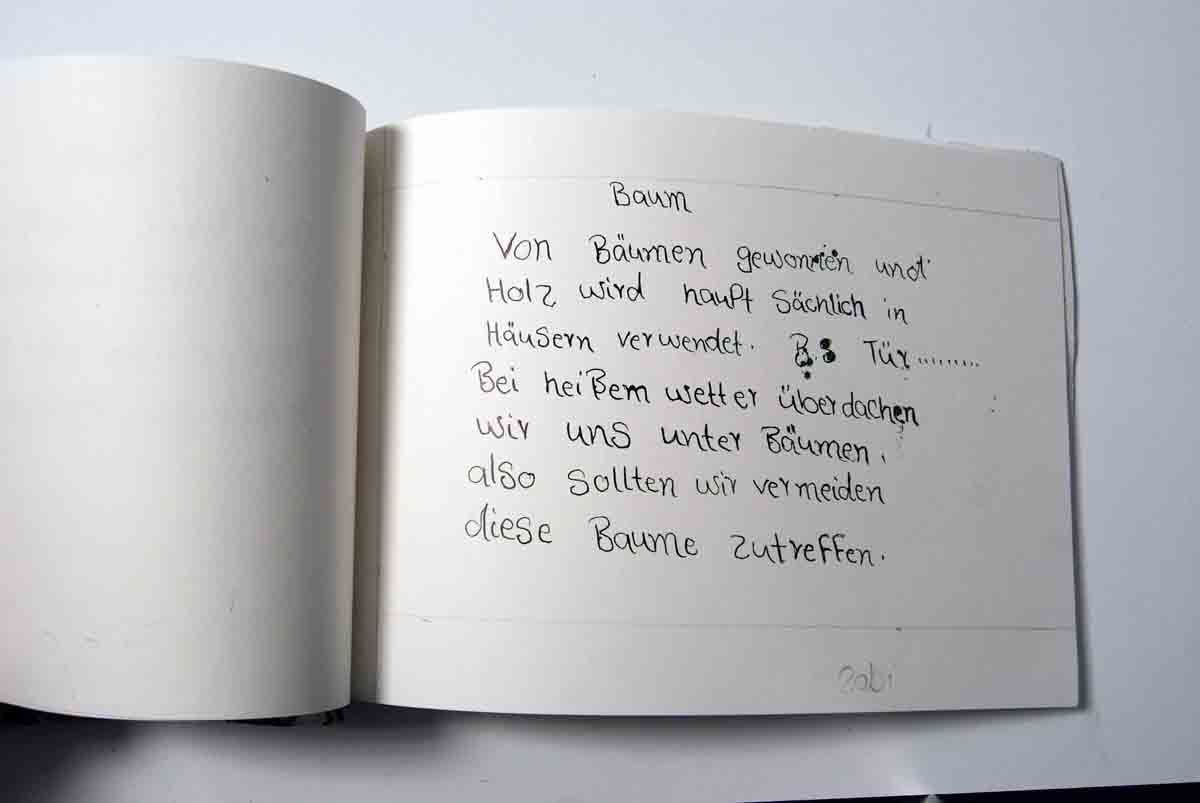 Baum
Von Bäumen gewonnen und
Holz wird haupt Sächlich in
Häusern verwendet. B.S Tür.........
Bei heißem wetter überdachen
wir uns unter Bäumen.
also sollten wir vermeiden
diese Baume zutreffen.